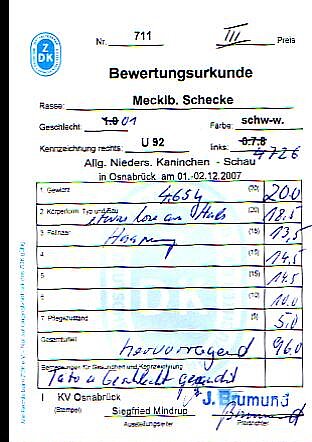 ZDK
Nr. 711 III Preis
Bewertungsurkunde
Rasse: Mecklb. Schecke
Geschlecht: 1.0 01 Farbe: schw-w.
Kennzeichnung rechts: U 92 links: 0.7.8 4726
Allg. Nieders. Kaninchen - Schau
in Osnabrück am 01.-02.12.2007
1 Gewicht 4,654 (20) 20.0
2 Körperform, Typ und Bau etwas lose am Hals (20) 18,5
3 Fellhaar (15) 13,5
4 (15) 14.5
5 (15) 14.5
6 (10) 10.0
7 Pflegezustand (5) 5.0
Gesamturteil hervorragend 96.0
Bemerkungen für Gesundheit und Kennzeichnung
Tato u Geschlecht geändert
KV Osnabrück J. Brumund
(Stempel) Siegfried Mindrup
Ausstellungsleiter Preisrichter